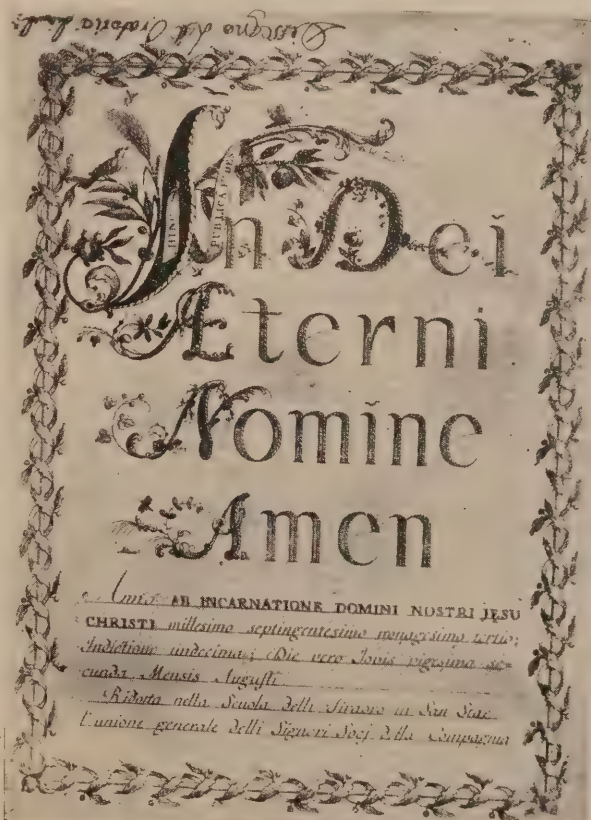 Dissegno del Oratorio
HINC PUBLICA FIDES
In Dei
Æterni
Nomine
Amen
Anno AB INCARNATIONE DOMINI NOSTRI JESU
CHRISTI millesimo septingentesimo nonagesimo tertio;
Indictione undecima; Die vero Jovis vigesima se=
cunda Mensis Augusti
Ridotta nella Scuola delli in San Stae
l'unione generale delli Signori Socj della Compagnia